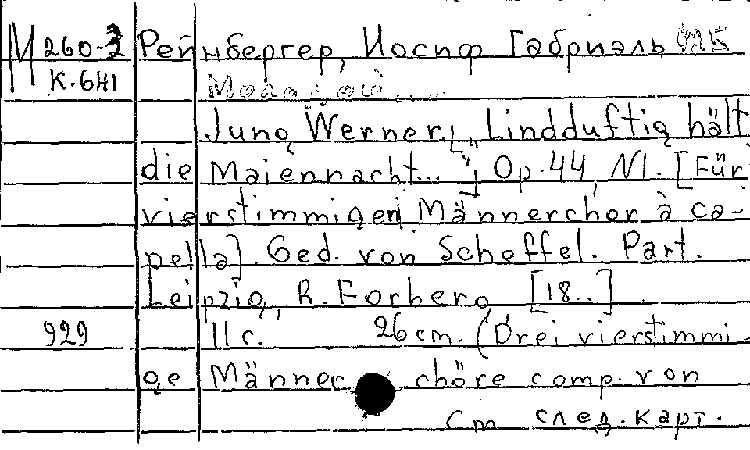 М 260-3 Рейнбергер, Иосиф Габриэль
К.641
Jung Werner. [„Lindduftig hält
die Maiennacht..."] Op.44, N1. [Für
vierstimmigen Männerchor à ca-
pella]. Ged. von Scheffel. Part.
Leipzig, R. Forberg [18..]
929 11 с. 26 cm. (Drei vierstimmi-
ge Männerchöre comp. von
См след. карт.